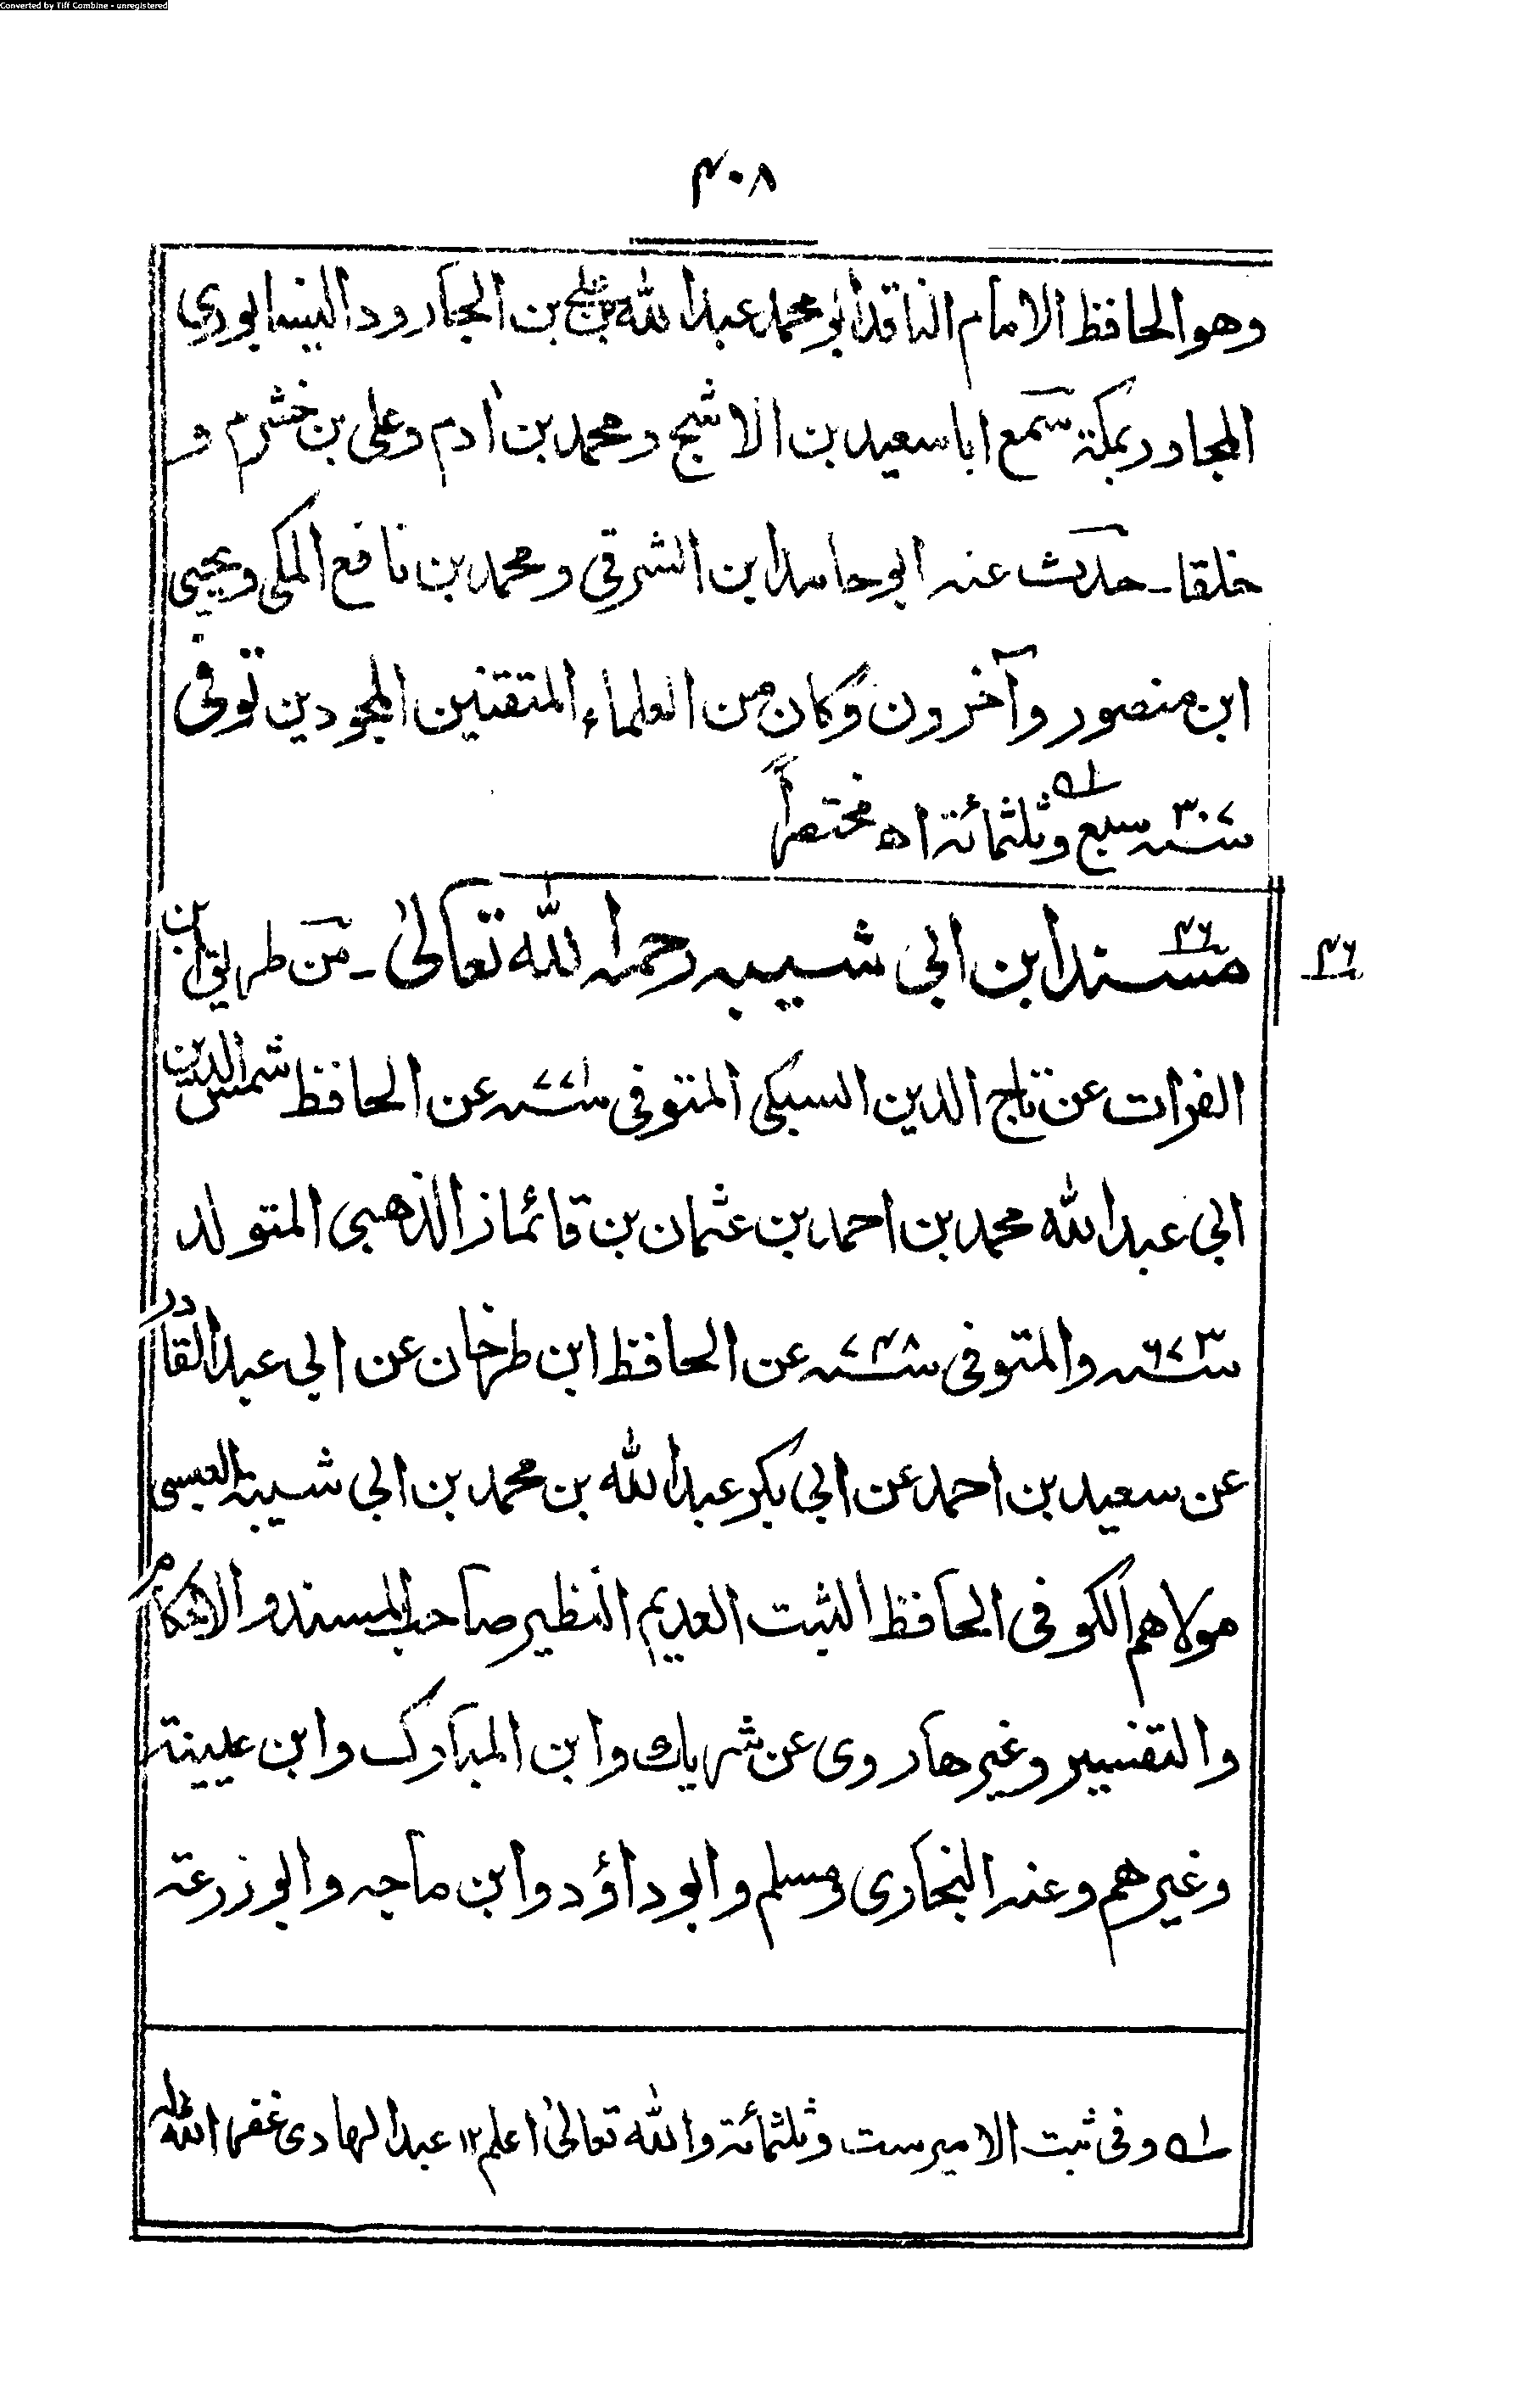 Converted by Tiff Combine - unregistered
۴۰۸
وهو الحافظ الامام الناقد ابو محمد عبد الله بن علی بن الجارود النیسابوری
المجاور بمکة سمع ابا سعید بن الاشج و محمد بن اٰدم وعلی بن خشرم و
خلقا ـ حدث عنه ابو حامد ابن الشرقی و محمد بن نافع المکی و یحییٰ
ابن منصور وآخرون وکان من العلماء المتقنین المجودین توفی
سنه ۳۰۷ سبع وثلثمائة ا ه مختصراً
۴۶
مسند ابن ابی شیبه رحمه الله تعالیٰ ـ من طریق ابن
۴۶
الفرات عن تاج الدین السبکی المتوفی سنه ۷۷۱ عن الحافظ شمس الدین
ابی عبد الله محمد بن احمد بن عثمان بن قائماز الذهبی المتولد
سنه ۶۷۳ والمتوفی سنه ۷۴۸ عن الحافظ ابن طرخان عن ابی عبد القادر
عن سعید بن احمد عن ابی بکر عبد الله بن محمد بن ابی شیبة العبسی
مولاهم الکوفی الحافظ الثبت العدیم النظیر صاحب المسند والاحکام
والتفسیر وغیرها روی عن شریك وابن المبارك وابن عیینة
وغیرهم وعنه البخاری ومسلم وابو داؤد وابن ماجه وابو زرعة
له وفی ثبت الامیر ست وثلثمائة والله تعالیٰ اعلم ۱۲ عبد الهادی غفر الله له